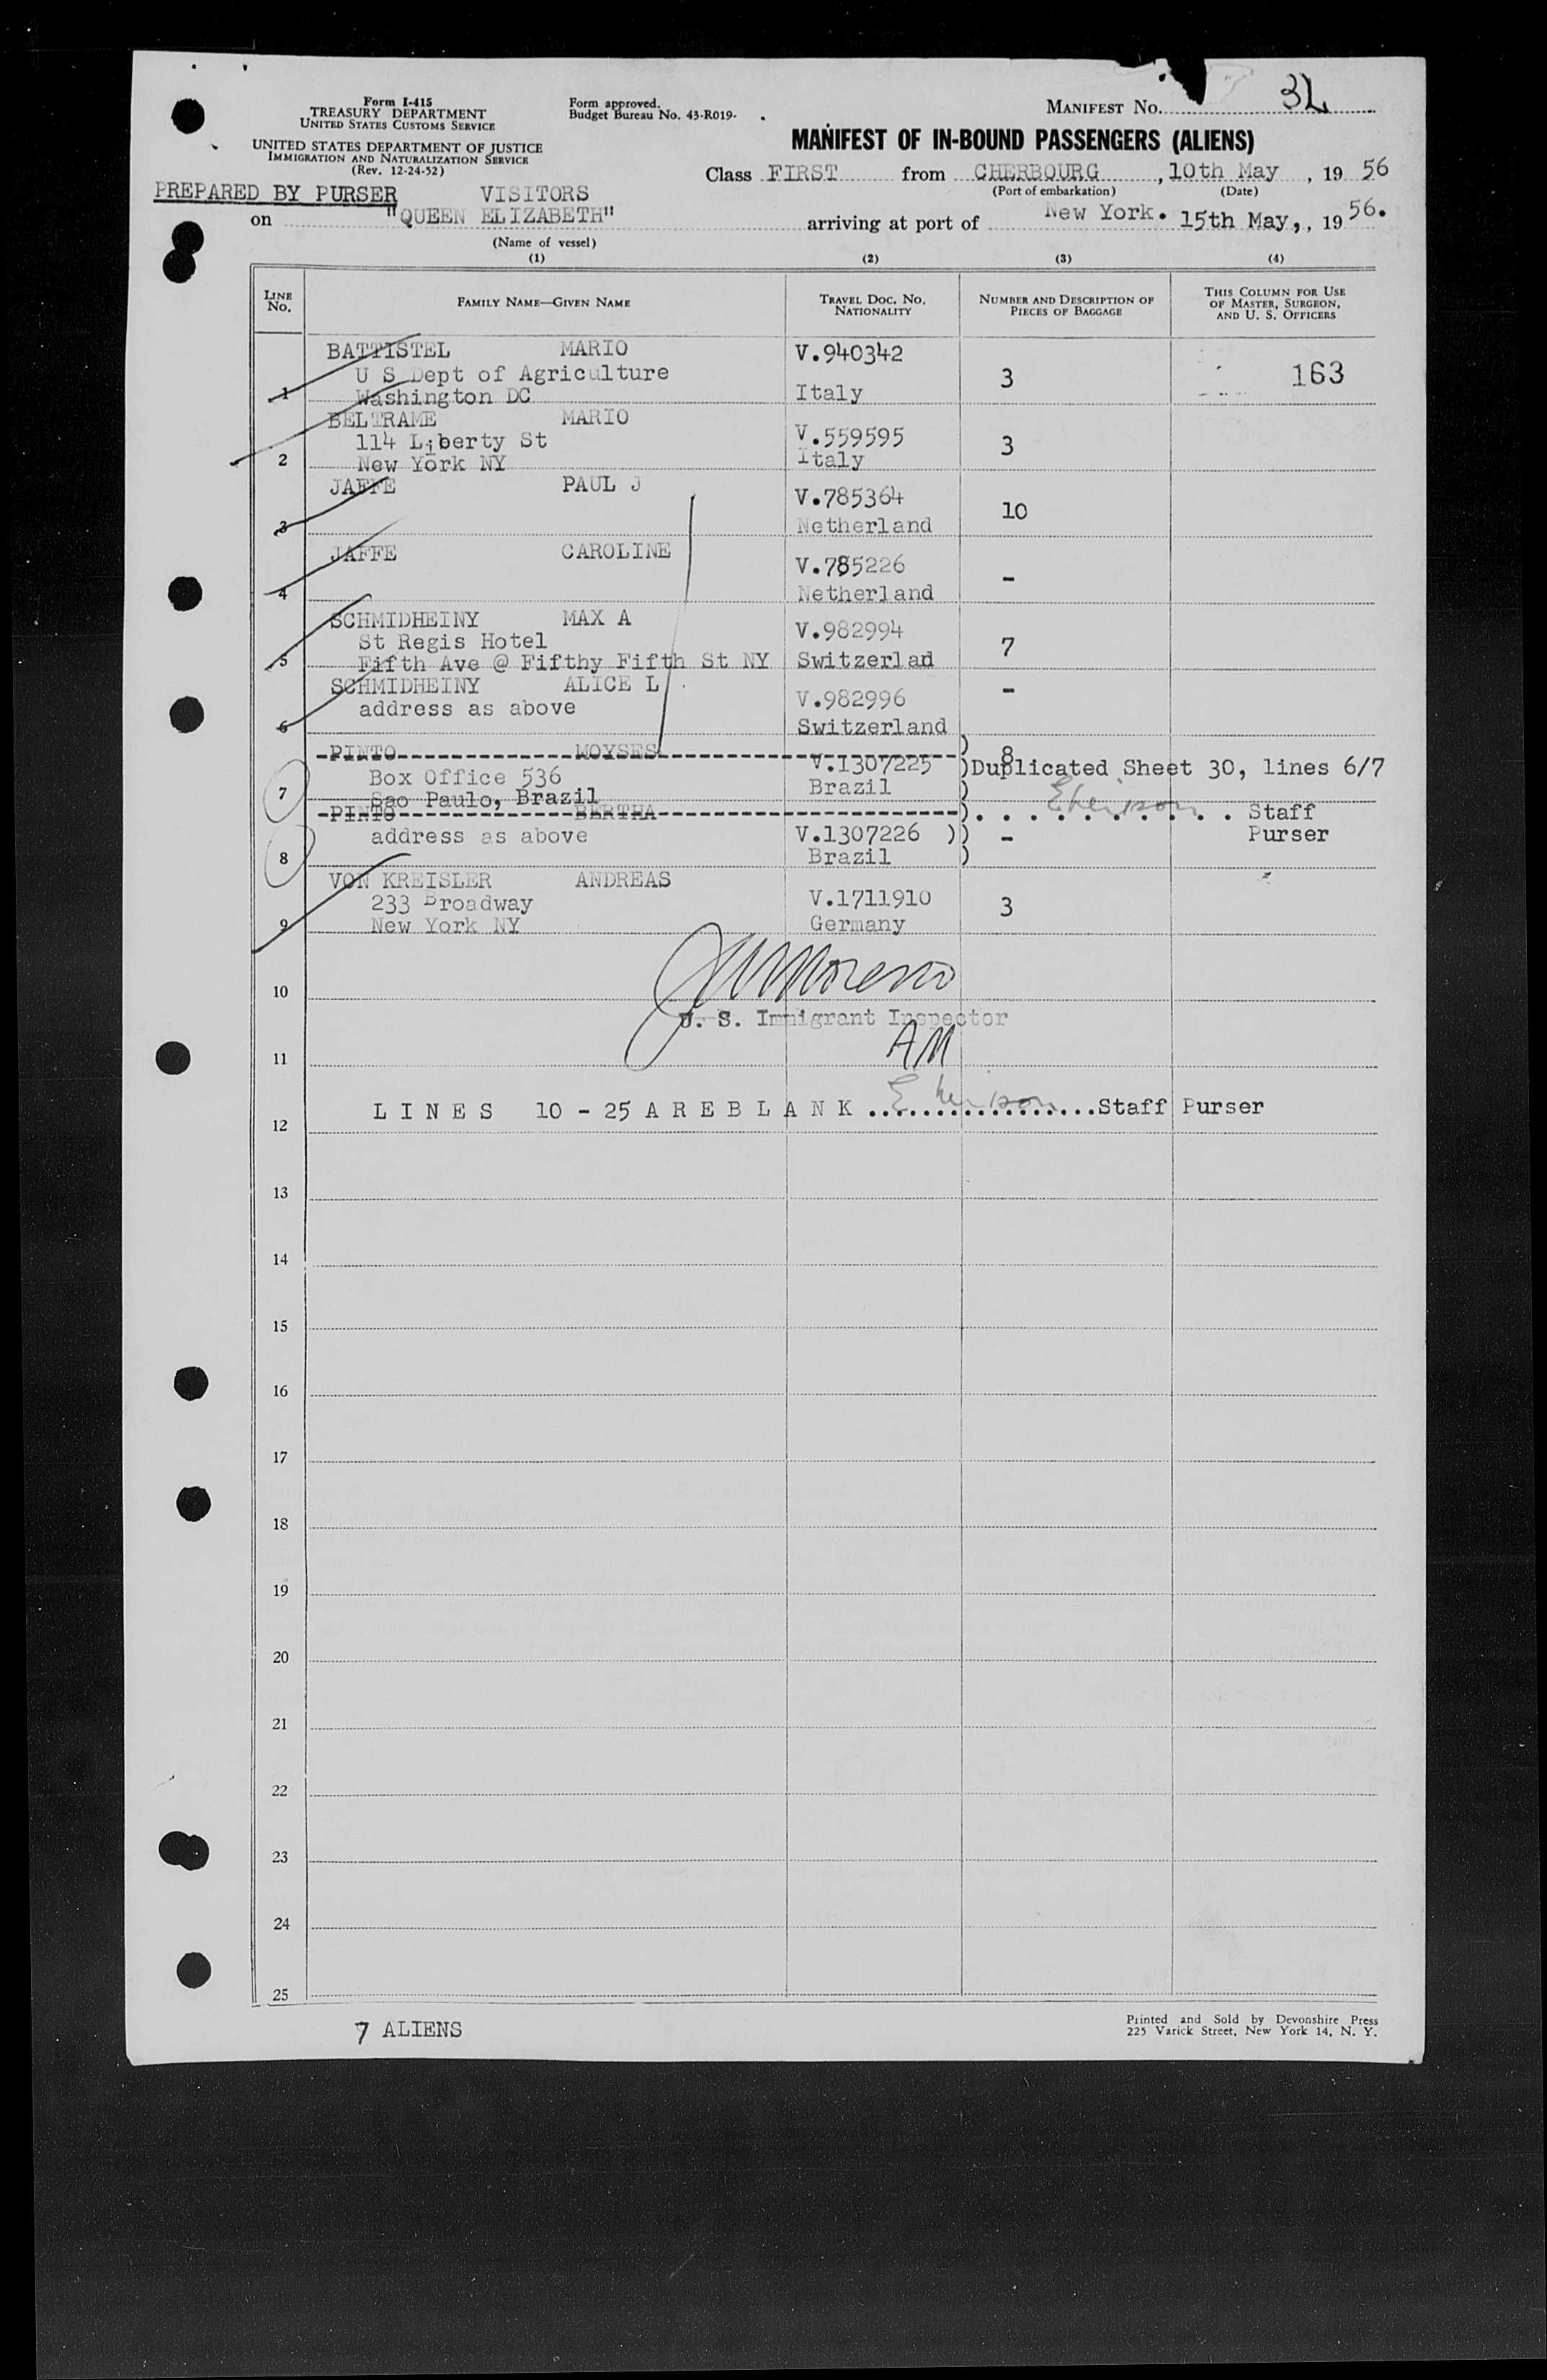 Form I-415
TREASURY DEPARTMENT
UNITED STATES CUSTOMS SERVICE
UNITED STATES DEPARTMENT OF JUSTICE
IMMIGRATION AND NATURALIZATION SERVICE
(Rev. 12-24-52)
Form approved.
Budget Bureau No. 43-R019-
MANIFEST No.
MANIFEST OF IN-BOUND PASSENGERS (ALIENS)
Class FIRST from CHERBOURG, 10th May, 19 56
(Port of embarkation) (Date)
PREPARED BY PURSER VISITORS
on "QUEEN ELIZABETH" arriving at port of New York. 15th May,, 19 56.
(Name of vessel)
(1) (2) (3) (4)
LINE No. FAMILY NAME—GIVEN NAME TRAVEL DOC. No. NATIONALITY NUMBER AND DESCRIPTION OF PIECES OF BAGGAGE THIS COLUMN FOR USE OF MASTER, SURGEON, AND U. S. OFFICERS
BATTISTEL MARIO V.940342
U S Dept of Agriculture 3 163
1 Washington DC Italy
BELTRAME MARIO
114 Liberty St V.559595 3
2 New York NY Italy
JAFFE PAUL J V.785364
10
3 Netherland
JAFFE CAROLINE
V.785226 -
4 Netherland
SCHMIDHEINY MAX A
St Regis Hotel V.982994 7
5 Fifth Ave @ Fifthy Fifth St NY Switzerlad
SCHMIDHEINY ALICE L -
address as above V.982996
6 Switzerland
PINTO MOYSES ) 8
Box Office 536 V.1307225 )Duplicated Sheet 30, lines 6/7
7 Sao Paulo, Brazil Brazil )
PINTO BERTHA ). . . . . . . . . . Staff
address as above V.1307226 )) - Purser
8 Brazil )
VON KREISLER ANDREAS
233 Broadway V.1711910 3
9 New York NY Germany
10
U. S. Immigrant Inspector
AM
11
LINES 10 - 25 ARE BLANK .................Staff Purser
12
13
14
15
16
17
18
19
20
21
22
23
24
25
7 ALIENS
Printed and Sold by Devonshire Press
225 Varick Street, New York 14, N. Y.